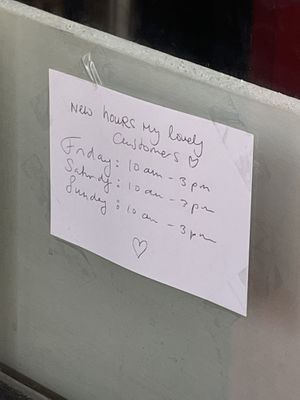 New hours My lovely
Customers ♡
Friday: 10am - 3pm
Saturday: 10am - 3pm
Sunday: 10am - 3pm
♡